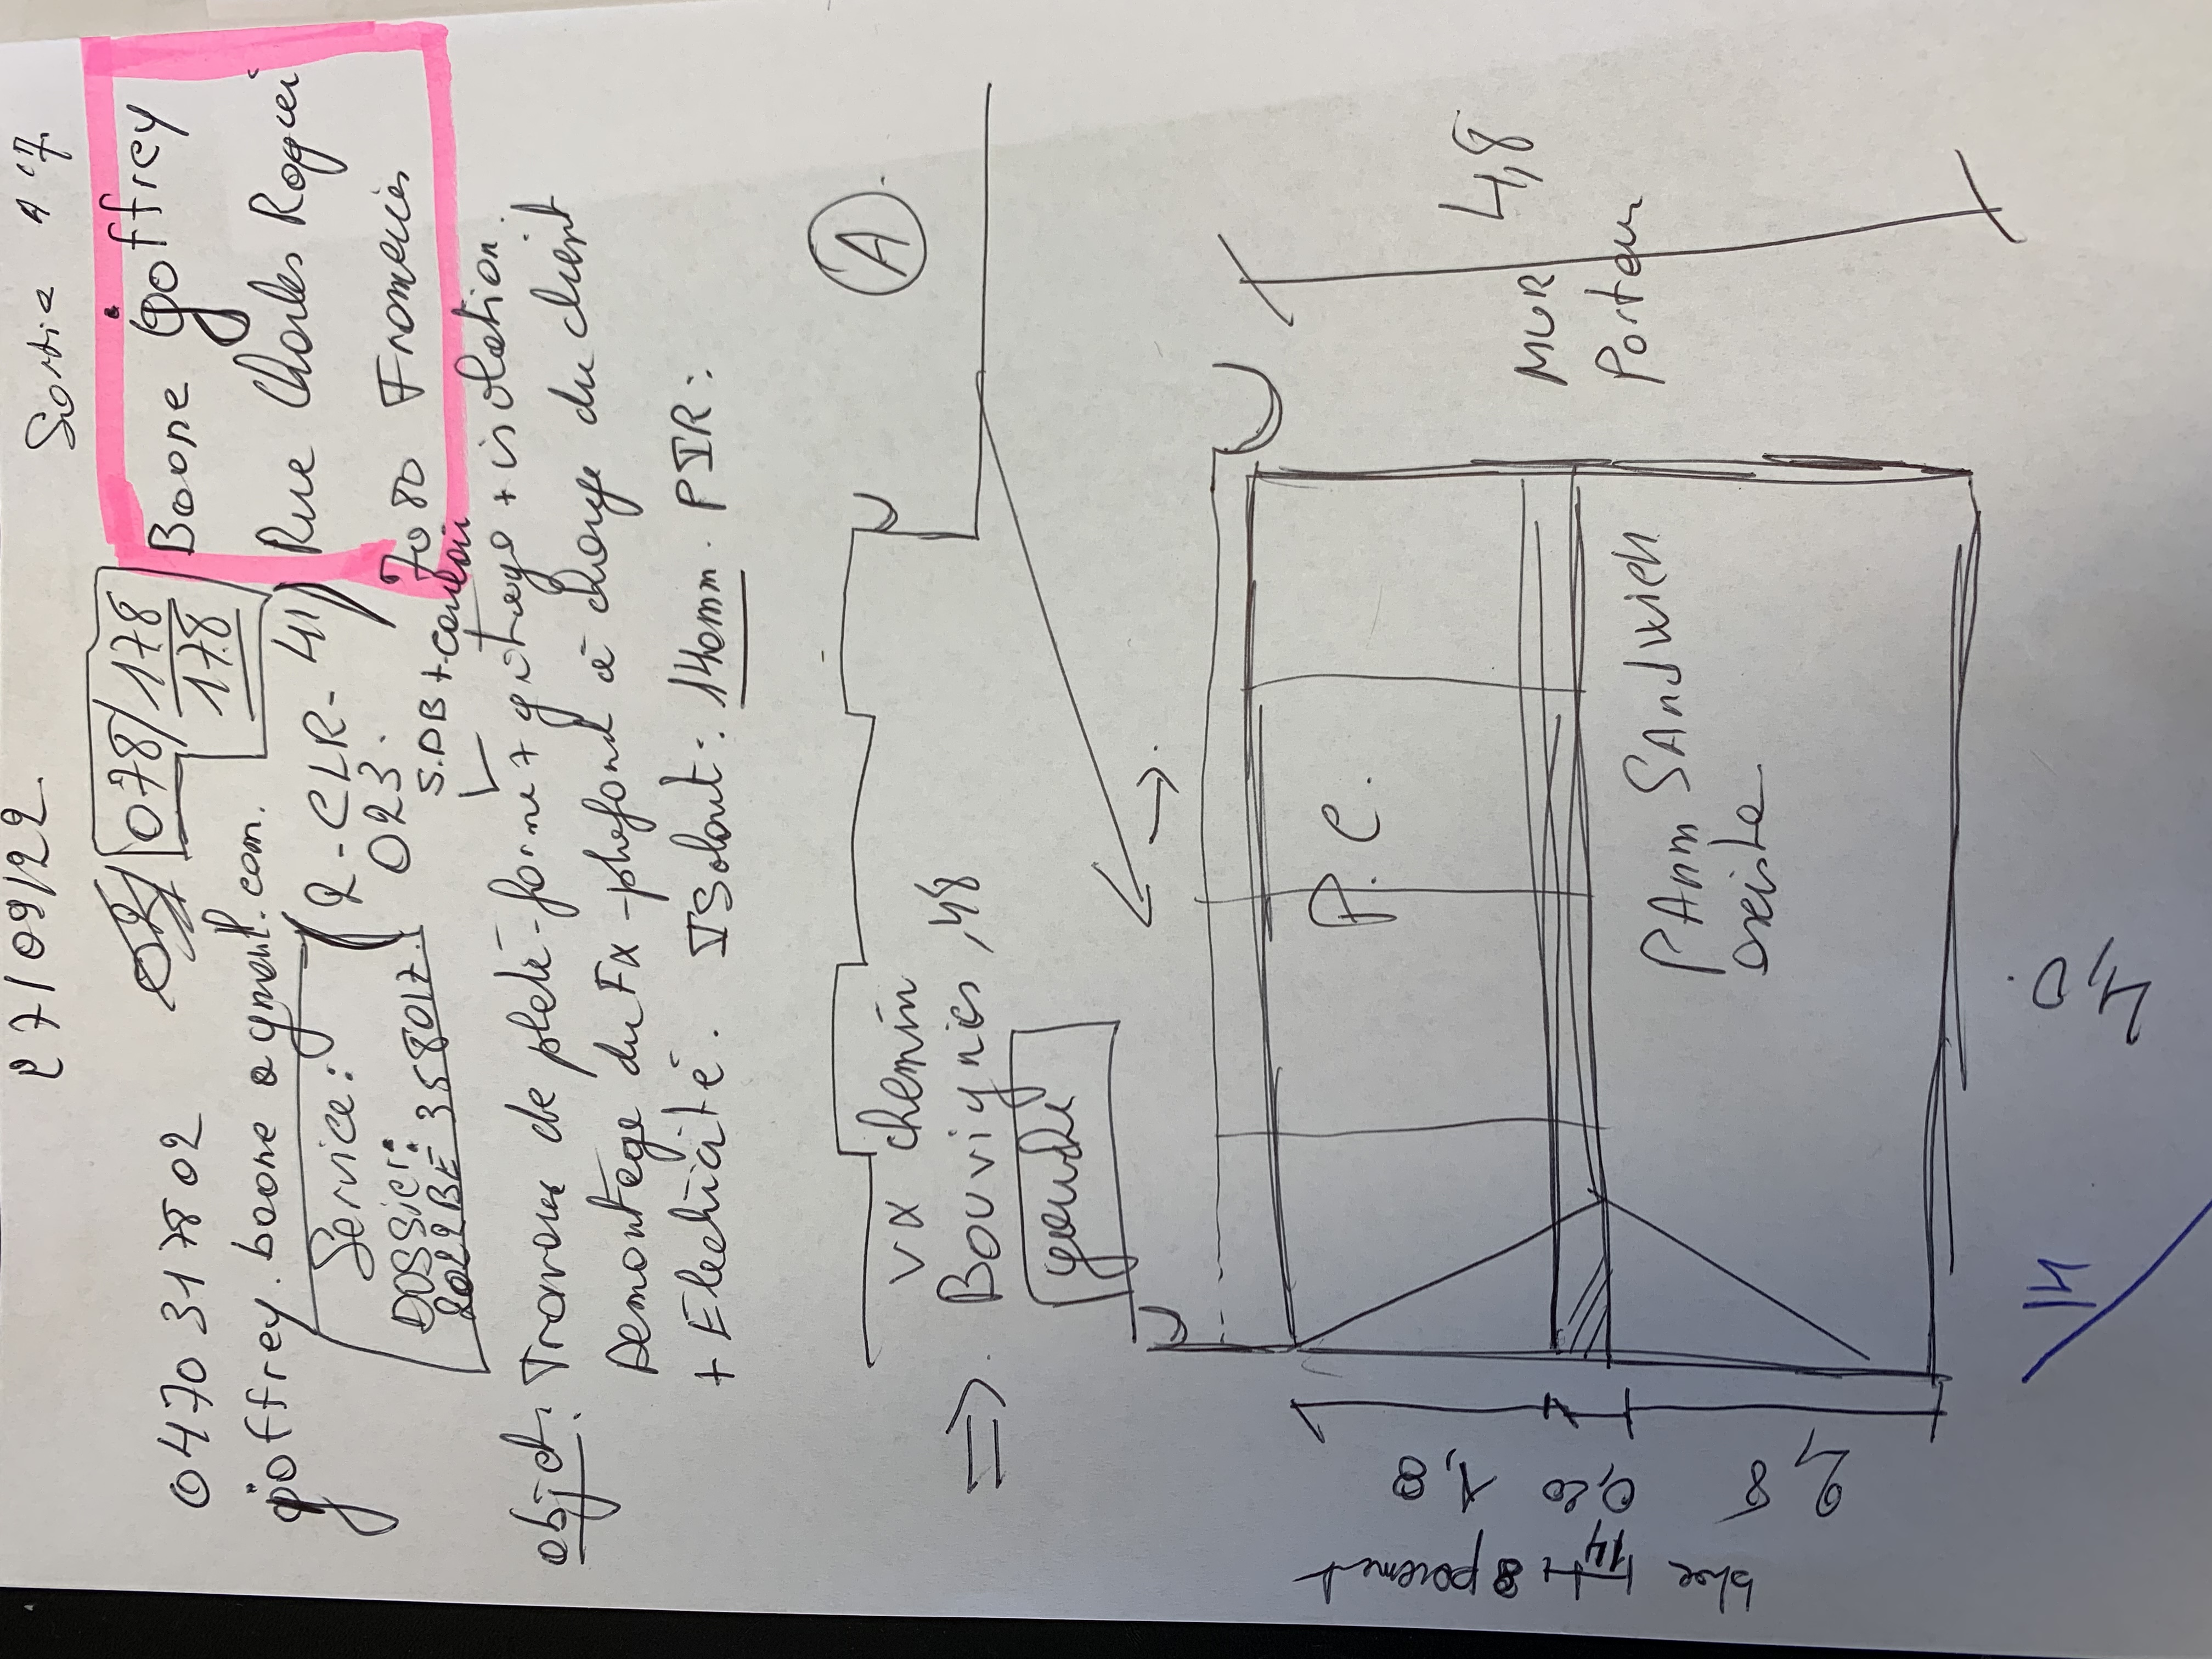 27/09/22
Sortie
Boone Goffrey
Rue Charles
7080 Frameries
078/178
178
0470 317802
goffrey.boone@gmail.com.
Service:
(2-CLR-41)
023.
DOSSier:
2022BE358017
S.DB +
objet: Travaux de plate-forme + gitage + isolation
Demontage du Fx-plafond à charge du client
+ Electricité. ISolant: 140mm. PIR:
A
vx chemin
Bouvignies, 48
gauche
P.C.
PAnn SAndwich
existe
MUR
Porteur
4,8
4,0
1,8
0,20
2,8
bloc 14 + 8 parement